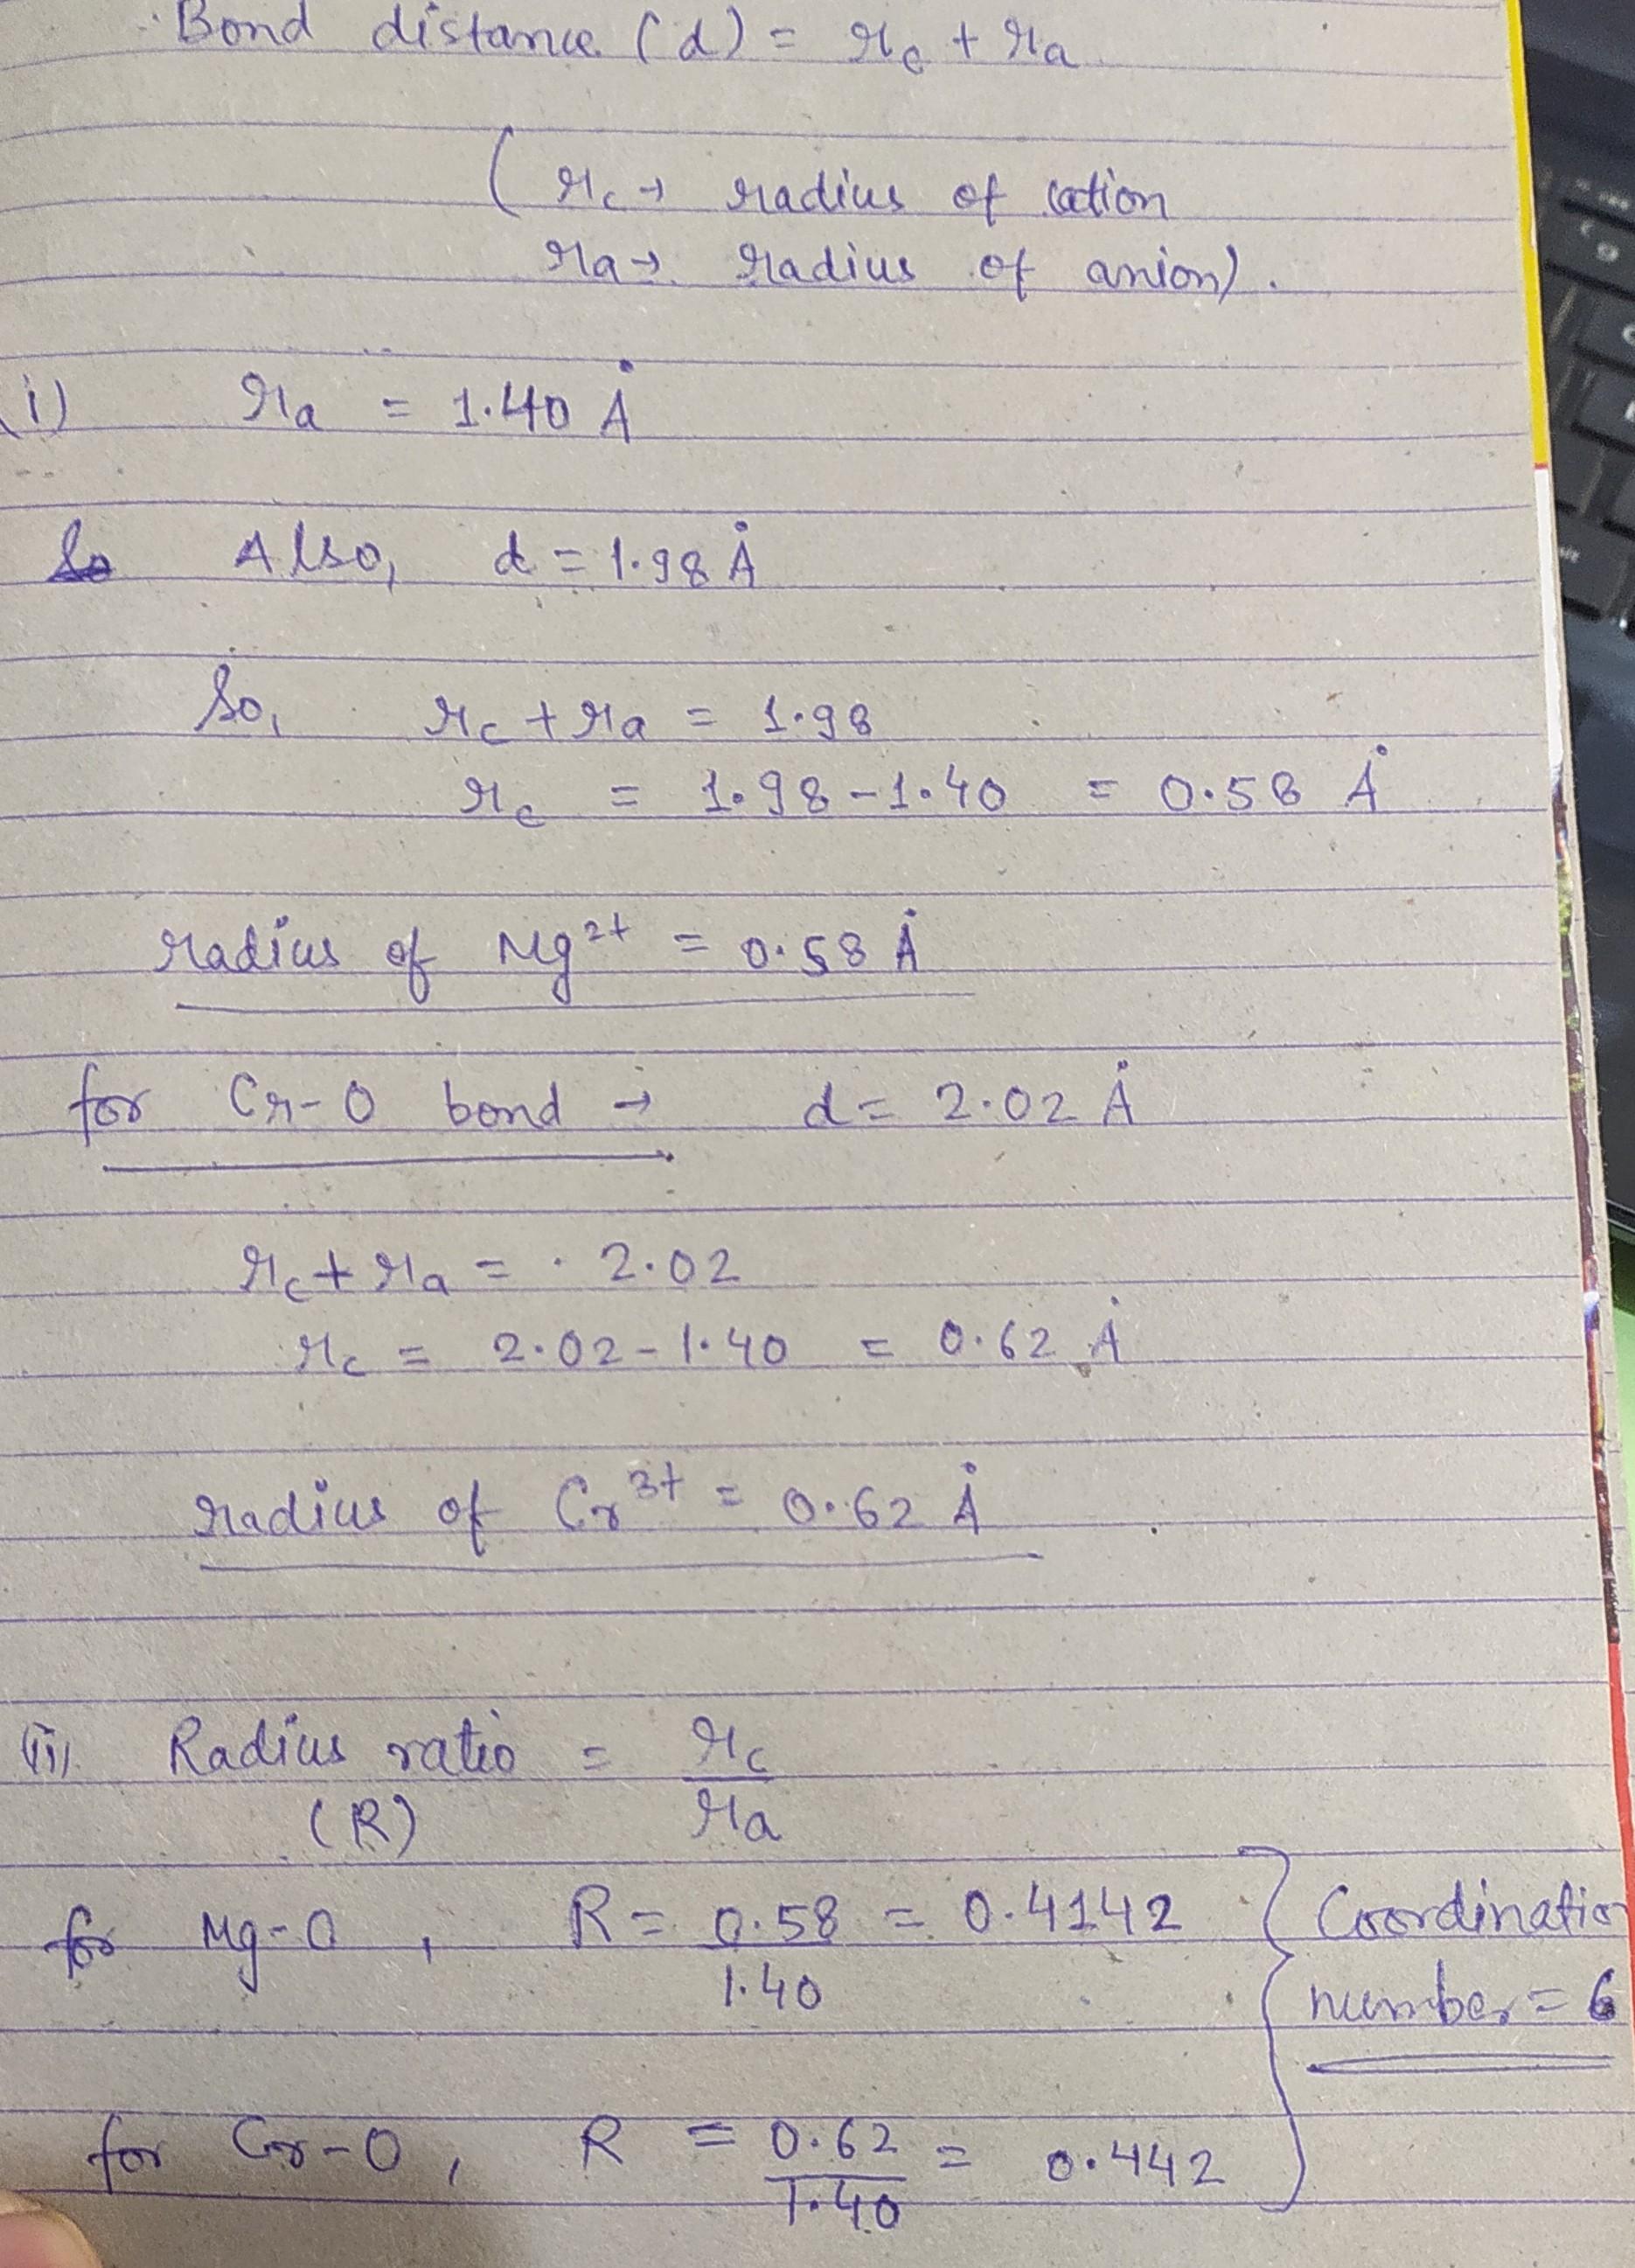 Bond distance (d) = rc + ra
(rc → radius of cation
ra → radius of anion).
(i) ra = 1.40 Å
So Also, d = 1.98 Å
So, rc + ra = 1.98
rc = 1.98 - 1.40 = 0.58 Å
radius of Mg²⁺ = 0.58 Å
for Cr-O bond → d = 2.02 Å
rc + ra = 2.02
rc = 2.02 - 1.40 = 0.62 Å
radius of Cr³⁺ = 0.62 Å
(ii) Radius ratio = rc
(R) ra
for Mg-O, R = 0.58 = 0.4142 } Coordination
1.40 number = 6
for Cr-O, R = 0.62 = 0.442
1.40